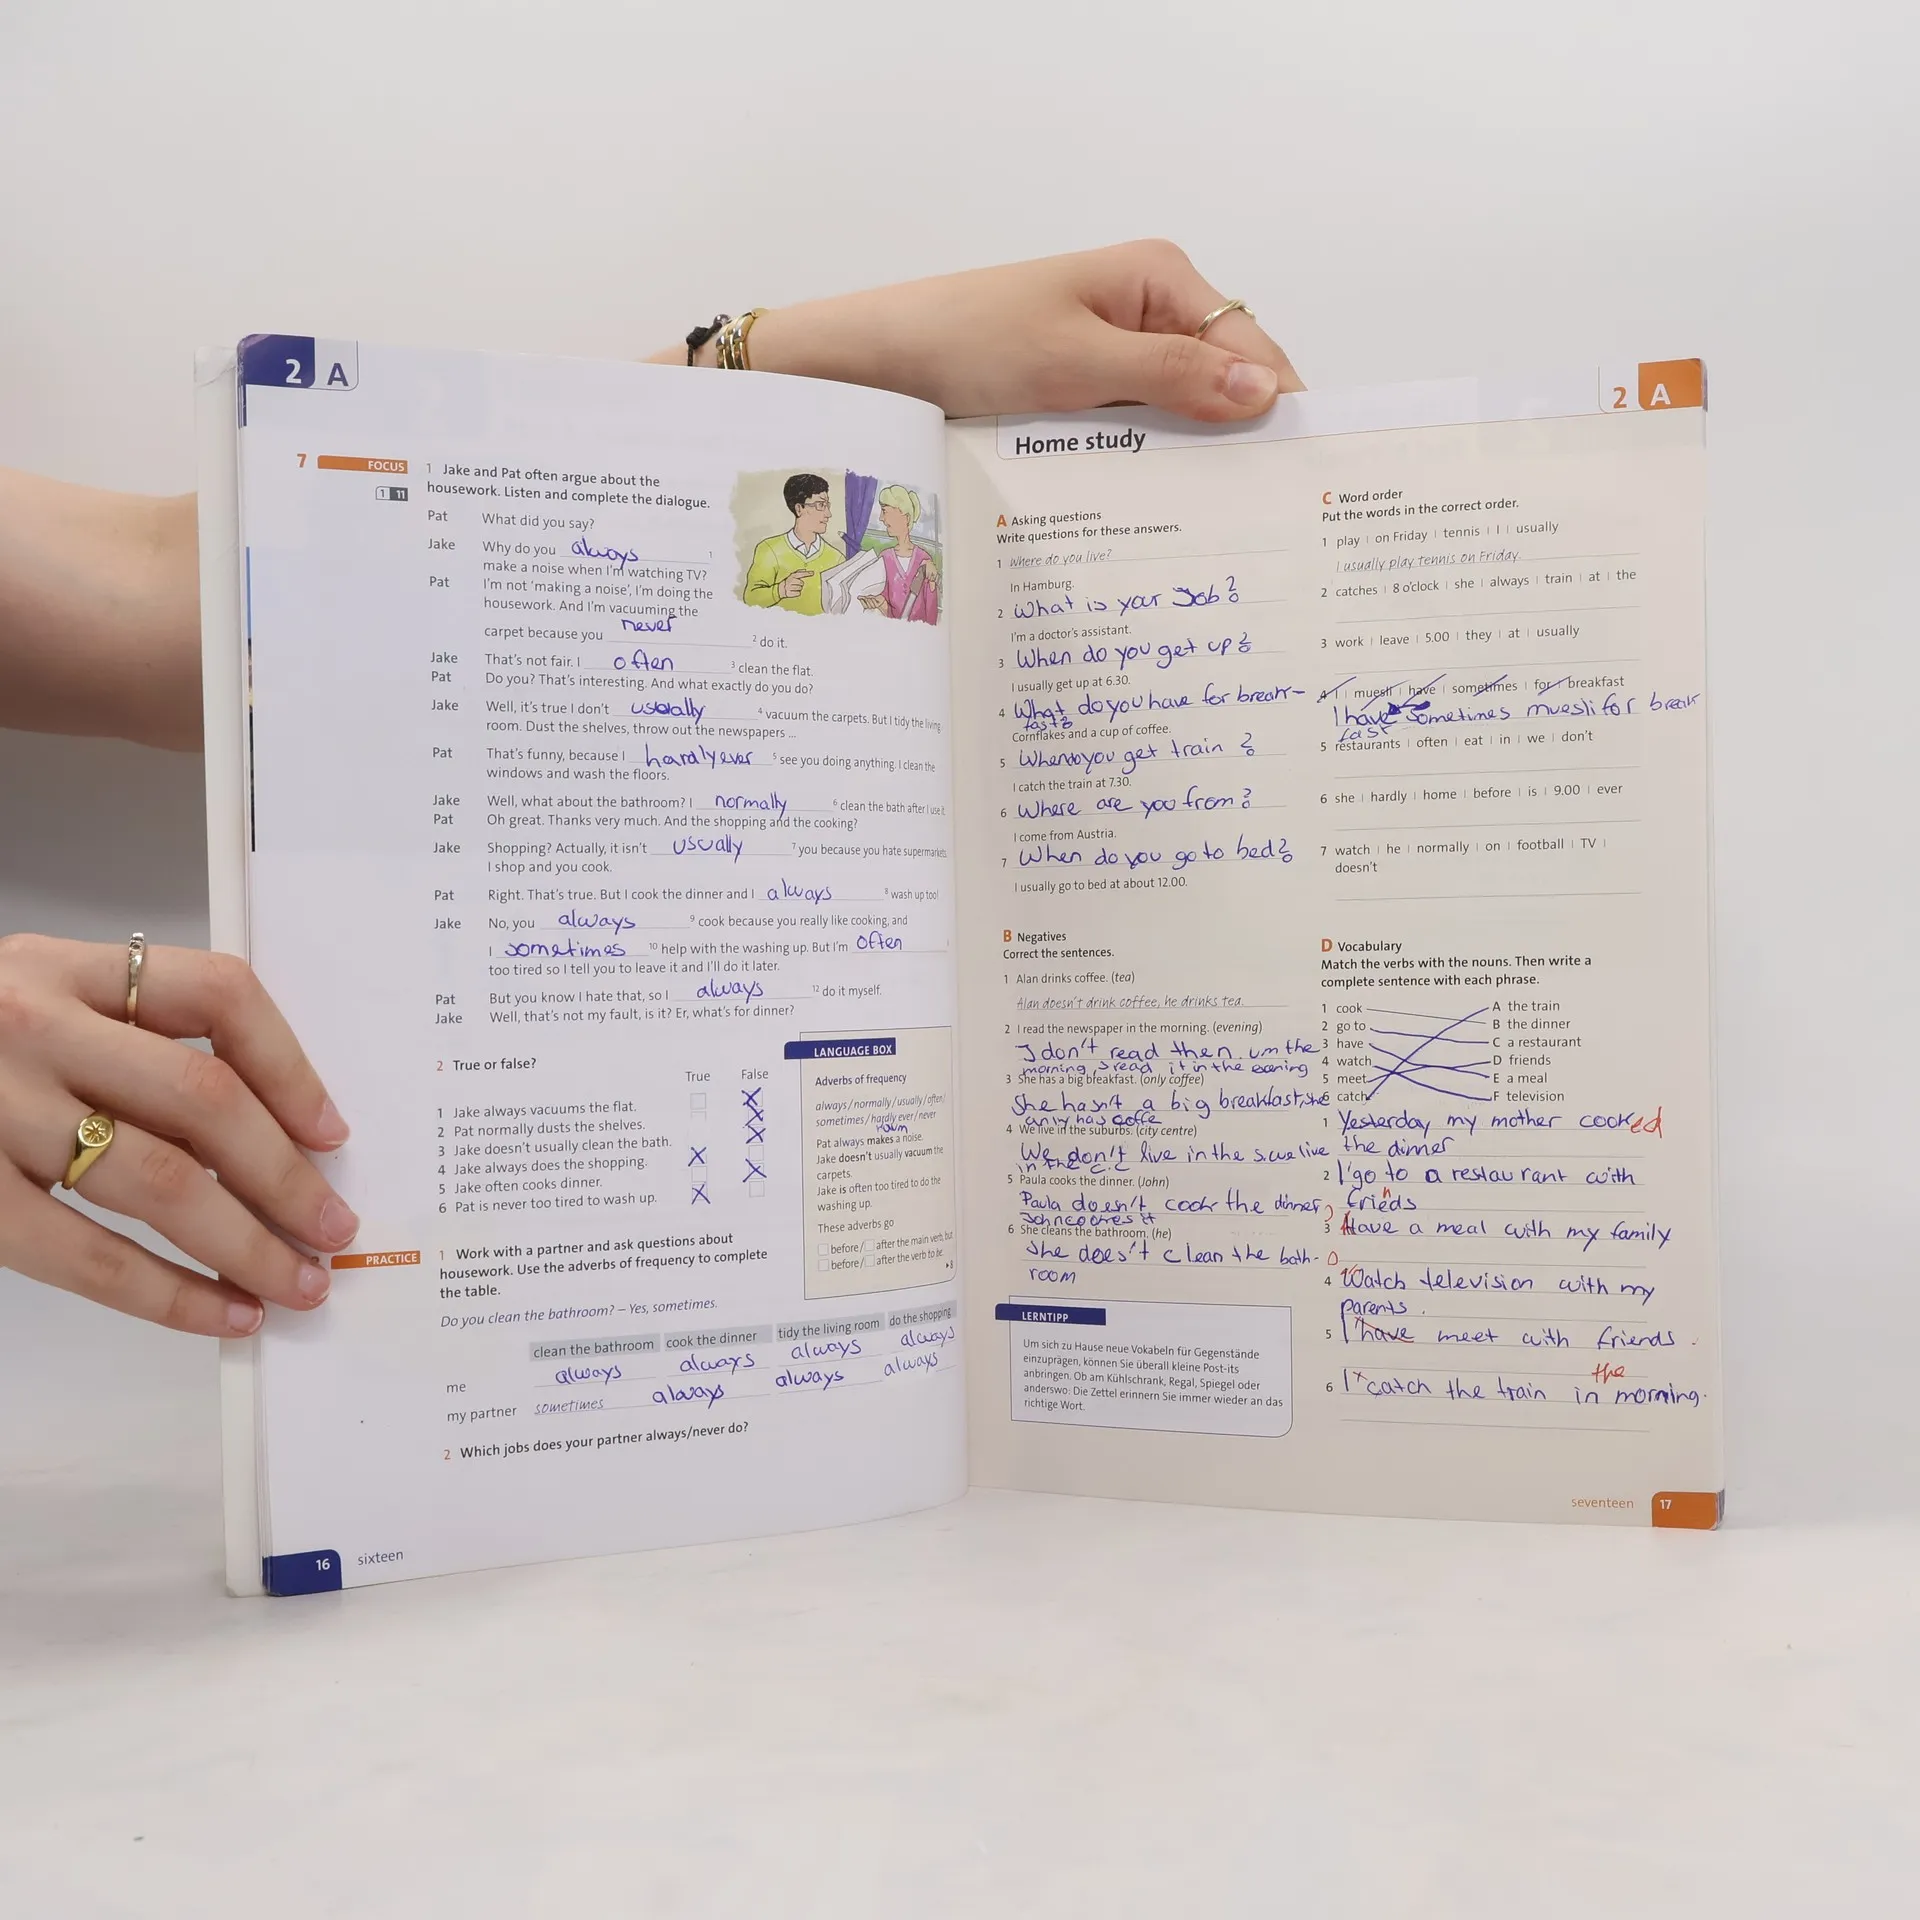 2 A
7 FOCUS
1 11
1 Jake and Pat often argue about the
housework. Listen and complete the dialogue.
Pat What did you say?
Jake Why do you always 1
make a noise when I'm watching TV?
Pat I'm not 'making a noise', I'm doing the
housework. And I'm vacuuming the
carpet because you never 2 do it.
Jake That's not fair. I often 3 clean the flat.
Pat Do you? That's interesting. And what exactly do you do?
Jake Well, it's true I don't usually 4 vacuum the carpets. But I tidy the living
room. Dust the shelves, throw out the newspapers ...
Pat That's funny, because I hardly ever 5 see you doing anything. I clean the
windows and wash the floors.
Jake Well, what about the bathroom? I normally 6 clean the bath after I use it.
Pat Oh great. Thanks very much. And the shopping and the cooking?
Jake Shopping? Actually, it isn't usually 7 you because you hate supermarkets.
I shop and you cook.
Pat Right. That's true. But I cook the dinner and I always 8 wash up too!
Jake No, you always 9 cook because you really like cooking, and
I sometimes 10 help with the washing up. But I'm often
too tired so I tell you to leave it and I'll do it later.
Pat But you know I hate that, so I always 12 do it myself.
Jake Well, that's not my fault, is it? Er, what's for dinner?
2 True or false?
True False
1 Jake always vacuums the flat. X
2 Pat normally dusts the shelves. X
3 Jake doesn't usually clean the bath. X
4 Jake always does the shopping. X
5 Jake often cooks dinner. X
6 Pat is never too tired to wash up. X
LANGUAGE BOX
Adverbs of frequency
always / normally / usually / often /
sometimes / hardly ever / never
Pat always makes a noise.
Jake doesn't usually vacuum the
carpets.
Jake is often too tired to do the
washing up.
These adverbs go
before / after the main verb, but
before / after the verb to be.
PRACTICE
1 Work with a partner and ask questions about
housework. Use the adverbs of frequency to complete
the table.
Do you clean the bathroom? – Yes, sometimes.
clean the bathroom cook the dinner tidy the living room do the shopping
me always always always always
my partner sometimes always always always
2 Which jobs does your partner always/never do?
16 sixteen
2 A
Home study
A Asking questions
Write questions for these answers.
1 Where do you live?
In Hamburg.
2 What is your Job?
I'm a doctor's assistant.
3 When do you get up?
I usually get up at 6.30.
4 What do you have for break-
fast?
Cornflakes and a cup of coffee.
5 When do you get train?
I catch the train at 7.30.
6 Where are you from?
I come from Austria.
7 When do you go to bed?
I usually go to bed at about 12.00.
B Negatives
Correct the sentences.
1 Alan drinks coffee. (tea)
Alan doesn't drink coffee, he drinks tea.
2 I read the newspaper in the morning. (evening)
I don't read the n. um the
morning, I read it in the evening
3 She has a big breakfast. (only coffee)
She hasn't a big breakfast, she
only has coffe
4 We live in the suburbs. (city centre)
We don't live in the s. we live
in the c.c
5 Paula cooks the dinner. (John)
Paula doesn't cook the dinner,
John cookes it
6 She cleans the bathroom. (he)
She does't clean the bath-
room
LERNTIPP
Um sich zu Hause neue Vokabeln für Gegenstände
einzuprägen, können Sie überall kleine Post-its
anbringen. Ob am Kühlschrank, Regal, Spiegel oder
anderswo: Die Zettel erinnern Sie immer wieder an das
richtige Wort.
C Word order
Put the words in the correct order.
1 play | on Friday | tennis | I | usually
I usually play tennis on Friday.
2 catches | 8 o'clock | she | always | train | at | the
3 work | leave | 5.00 | they | at | usually
4 I | muesli | have | sometimes | for | breakfast
I have sometimes muesli for break
fast
5 restaurants | often | eat | in | we | don't
6 she | hardly | home | before | is | 9.00 | ever
7 watch | he | normally | on | football | TV |
doesn't
D Vocabulary
Match the verbs with the nouns. Then write a
complete sentence with each phrase.
1 cook A the train
2 go to B the dinner
3 have C a restaurant
4 watch D friends
5 meet E a meal
6 catch F television
1 Yesterday my mother cooked
the dinner
2 I go to a restaurant with
friends
3 Have a meal with my family
4 Watch television with my
parents.
5 I have meet with friends.
the
6 I catch the train in morning.
seventeen 17